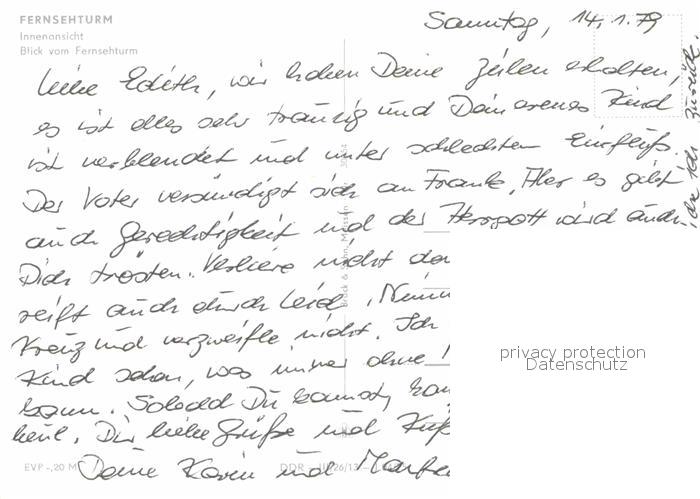 FERNSEHTURM
Innenansicht
Blick vom Fernsehturm
Sonntag, 14.1.79
Liebe Edith, wir haben Deine Zeilen erhalten,
es ist alles sehr traurig und Dein armes Kind
ist verblendet und unter schlechtem Einfluß.
Der Vater versündigt sich an Frank, Aber es gibt
auch Gerechtigkeit und der Herrgott wird auch
Dich trösten. Verliere nicht
reift auch durch Leid.
Kreuz und verzweifle nicht. Ich
Kind schon, was immer ohne
kann. Sobald Du kannst,
heut. Dir liebe Grüße und
Deine Karin und
zurück.
EVP -,20 M
DDR
privacy protection
Datenschutz